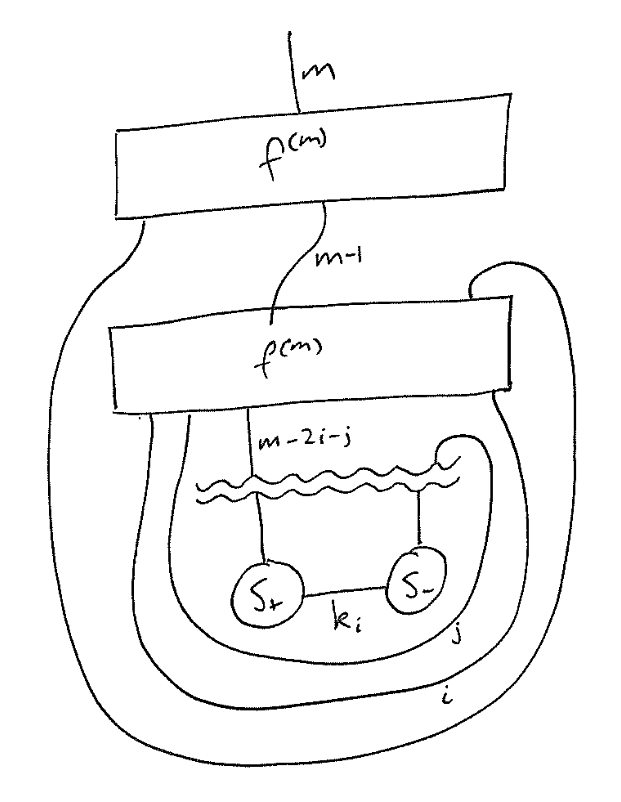 m
f^(m)
m-1
f^(m)
m-2i-j
S+
S-
k_i
j
i